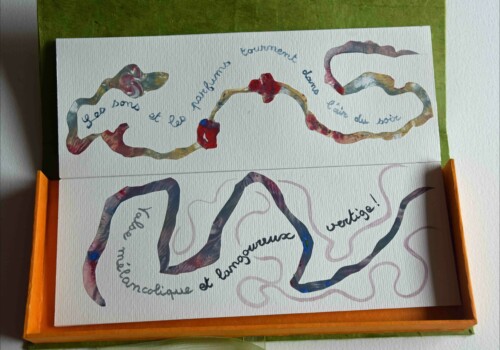 Les sons et les parfums tournent dans l'air du soir
Valse mélancolique et langoureux vertige!